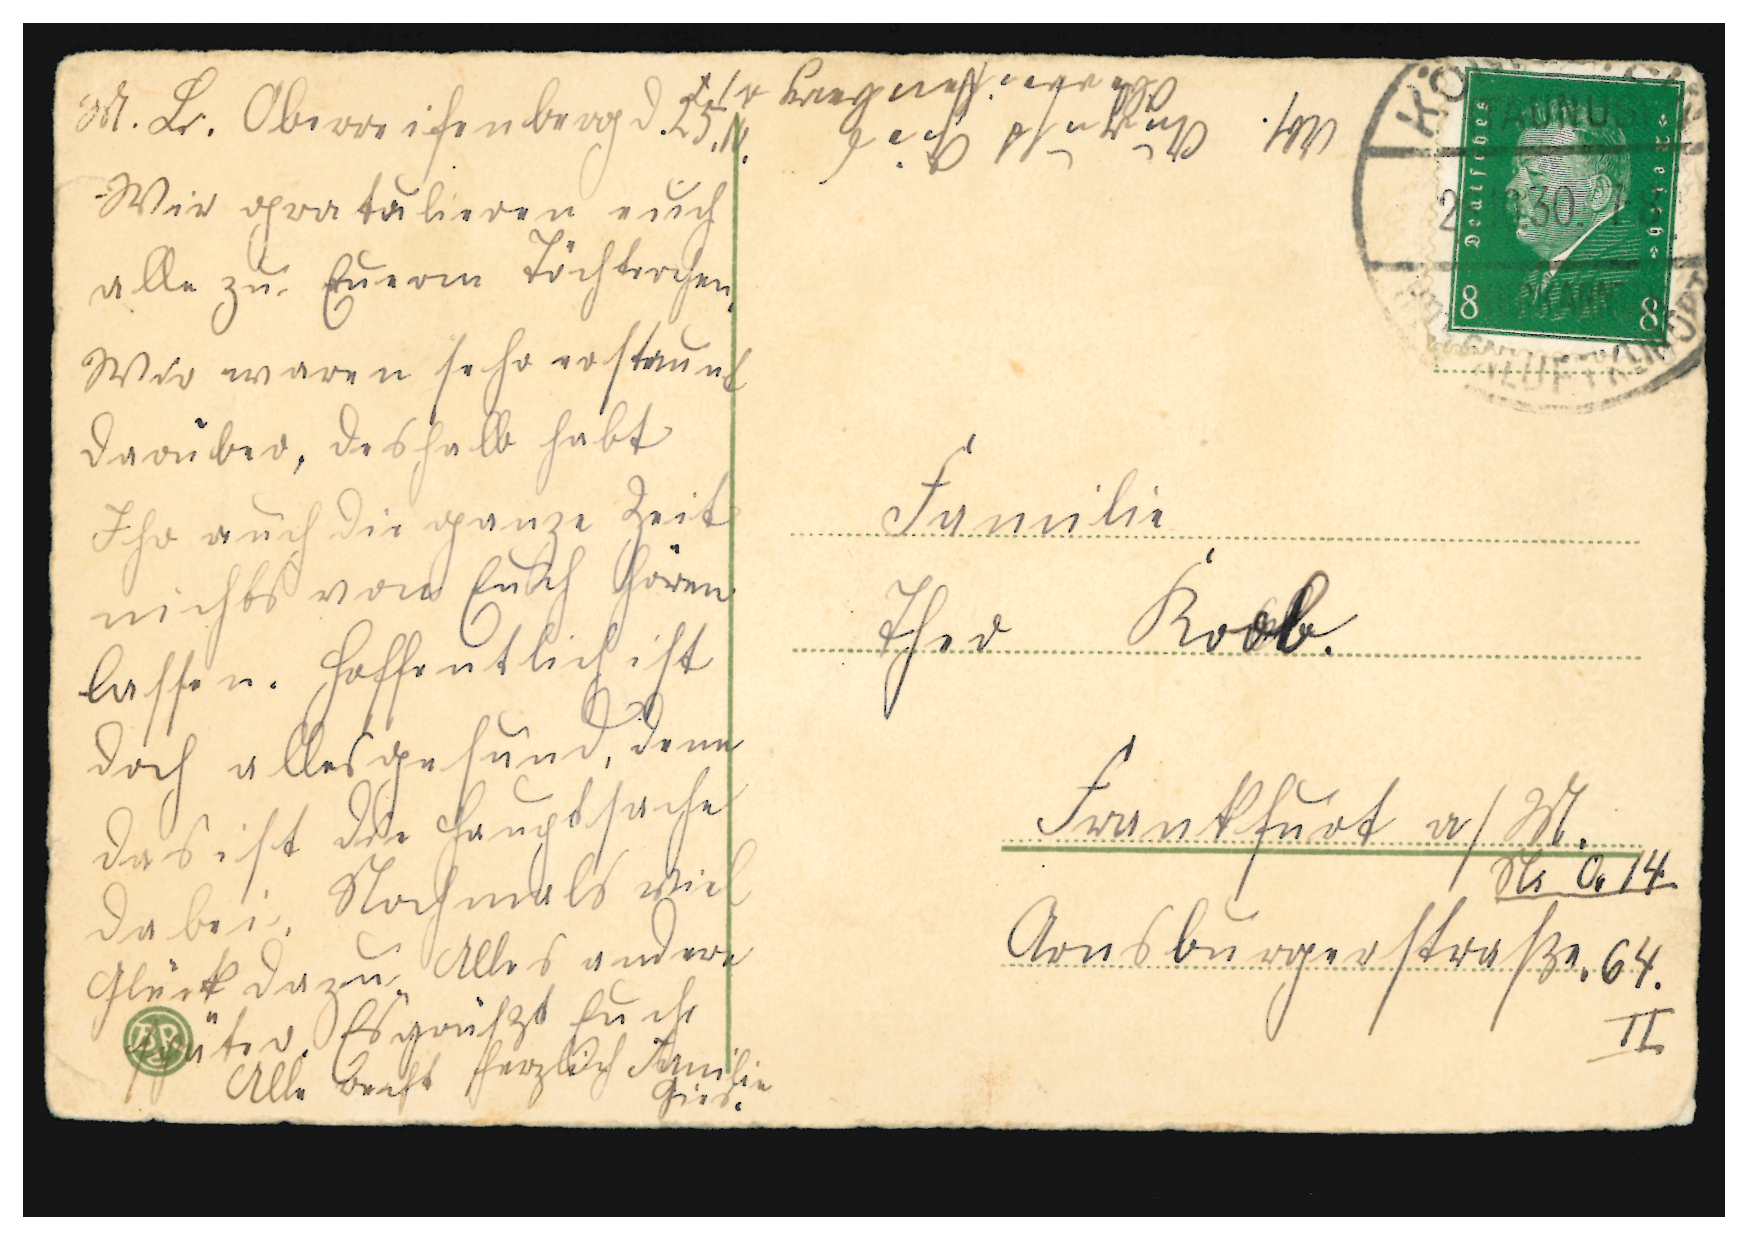 M. L. Oberreifenberg d. 25.11.
Wir gratulieren euch
alle zu Euerm Töchterchen,
Wir waren sehr erstaunt
darüber, deshalb habt
Ihr auch die ganze Zeit
nichts von Euch hören
lassen. Hoffentlich ist
doch alles gesund, denn
das ist die Hauptsache
dabei. Nochmals viel
Glück dazu. Alles andere
später. Es grüßt Euch
Alle recht herzlich Familie
Gies.
Deutsches Reich
8 8
Familie
Theo Koob.
Frankfurt a/M.
N. O. 14.
Arnsburgerstraße. 64.
II